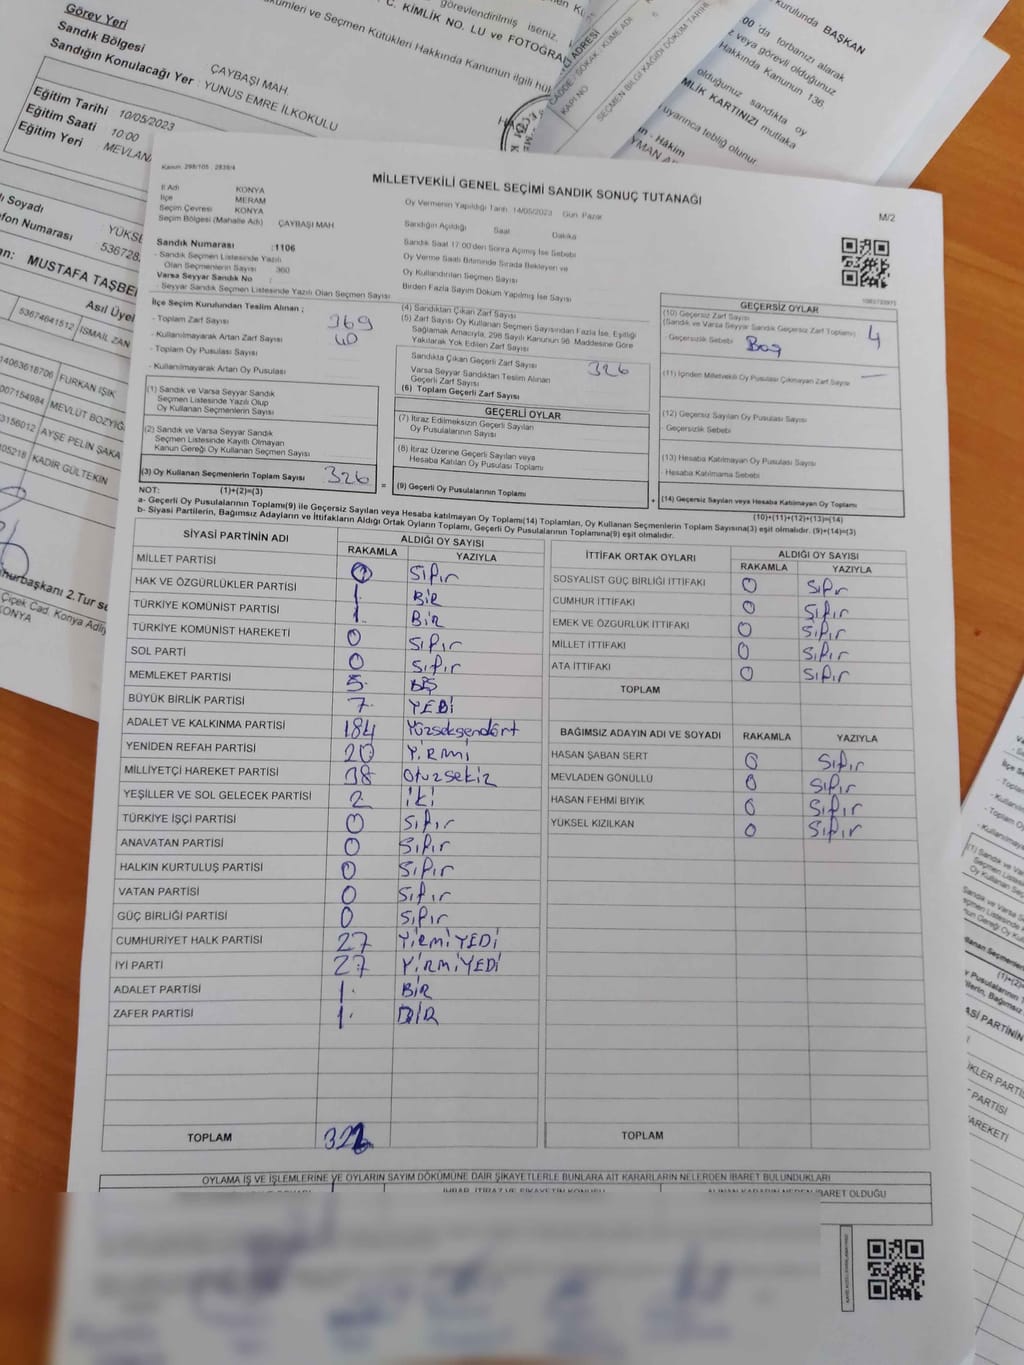 Görev Yeri
Sandık Bölgesi
Sandığın Konulacağı Yer : YUNUS EMRE İLKOKULU
ÇAYBAŞI MAH.
Eğitim Tarihi 10/05/2023
Eğitim Saati 10:00
Eğitim Yeri
C. KİMLİK NO. LU ve
görevlendirilmiş iseniz,
ve Seçmen Kütükleri Hakkında Kanunun ilgili
CADDE / SOKAK / KÜME ADI
KAPI NO
SEÇMEN BİLGİ KAĞIDI DÖKÜM TARİHİ
kurulunda BAŞKAN
00 'da torbanızı alarak
veya görevli olduğunuz
Hakkında Kanunun 136.
olduğunuz sandıkta oy
KARTINIZI mutlaka
uyarınca tebliğ olunur.
Soyadı
Numarası
MUSTAFA
Asıl
53674641512 İSMAİL ZAN
FURKAN IŞIK
MEVLÜT
AYŞE PELİN ŞAKA
KADİR GÜLTEKİN
2.Tur
Çiçek Cad. Konya
KONYA
MİLLETVEKİLİ GENEL SEÇİMİ SANDIK SONUÇ TUTANAĞI
M/2
İl Adı KONYA
İlçe MERAM
Seçim Çevresi KONYA
Seçim Bölgesi (Mahalle Adı) : ÇAYBAŞI MAH
Sandık Numarası :1106
- Sandık Seçmen Listesinde Yazılı
Olan Seçmenlerin Sayısı 360
Varsa Seyyar Sandık No :
- Seyyar Sandık Seçmen Listesinde Yazılı Olan Seçmen Sayısı
Oy Vermenin Yapıldığı Tarih 14/05/2023 Gün Pazar
Sandığın Açıldığı Saat Dakika
Sandık Saat 17:00'den Sonra Açılmış İse Sebebi
Oy Verme Saati Bitiminde Sırada Bekleyen ve
Oy Kullandırılan Seçmen Sayısı
Birden Fazla Sayım Döküm Yapılmış İse Sayısı
İlçe Seçim Kurulundan Teslim Alınan ;
- Toplam Zarf Sayısı 369
- Kullanılmayarak Artan Zarf Sayısı 40
- Toplam Oy Pusulası Sayısı
- Kullanılmayarak Artan Oy Pusulası
(1) Sandık ve Varsa Seyyar Sandık
Seçmen Listesinde Yazılı Olup
Oy Kullanan Seçmenlerin Sayısı
(2) Sandık ve Varsa Seyyar Sandık
Seçmen Listesinde Kayıtlı Olmayan
Kanun Gereği Oy Kullanan Seçmen Sayısı
(3) Oy Kullanan Seçmenlerin Toplam Sayısı 326
=
(4) Sandıktan Çıkan Zarf Sayısı
(5) Zarf Sayısı Oy Kullanan Seçmen Sayısından Fazla İse, Eşitliği
Sağlamak Amacıyla, 298 Sayılı Kanunun 98. Maddesine Göre
Yakılarak Yok Edilen Zarf Sayısı
Sandıkta Çıkan Geçerli Zarf Sayısı 326
Varsa Seyyar Sandıktan Teslim Alınan
Geçerli Zarf Sayısı
(6) Toplam Geçerli Zarf Sayısı
GEÇERLİ OYLAR
(7) İtiraz Edilmeksizin Geçerli Sayılan
Oy Pusulalarının Sayısı
(8) İtiraz Üzerine Geçerli Sayılan veya
Hesaba Katılan Oy Pusulası Toplamı
(9) Geçerli Oy Pusulalarının Toplamı
+
GEÇERSİZ OYLAR
(10) Geçersiz Zarf Sayısı
(Sandık ve Varsa Seyyar Sandık Geçersiz Zarf Toplamı) 4
Geçersizlik Sebebi Boş
(11) İçinden Milletvekili Oy Pusulası Çıkmayan Zarf Sayısı —
(12) Geçersiz Sayılan Oy Pusulası Sayısı
Geçersizlik Sebebi
(13) Hesaba Katılmayan Oy Pusulası Sayısı
Hesaba Katılmama Sebebi
(14) Geçersiz Sayılan veya Hesaba Katılmayan Oy Toplamı
NOT: (1)+(2)=(3)
(10)+(11)+(12)+(13)=(14)
a- Geçerli Oy Pusulalarının Toplamı(9) ile Geçersiz Sayılan veya Hesaba katılmayan Oy Toplamı(14) Toplamları, Oy Kullanan Seçmenlerin Toplam Sayısına(3) eşit olmalıdır. (9)+(14)=(3)
b- Siyasi Partilerin, Bağımsız Adayların ve İttifakların Aldığı Ortak Oyların Toplamı, Geçerli Oy Pusulalarının Toplamına(9) eşit olmalıdır.
SİYASİ PARTİNİN ADI ALDIĞI OY SAYISI
RAKAMLA YAZIYLA
MİLLET PARTİSİ 0 Sıfır
HAK VE ÖZGÜRLÜKLER PARTİSİ 1. BİR
TÜRKİYE KOMÜNİST PARTİSİ 1. BİR
TÜRKİYE KOMÜNİST HAREKETİ 0 Sıfır
SOL PARTİ 0 Sıfır
MEMLEKET PARTİSİ 5. BEŞ
BÜYÜK BİRLİK PARTİSİ 7. YEDİ
ADALET VE KALKINMA PARTİSİ 184 Yüzseksendört
YENİDEN REFAH PARTİSİ 20 YİRMİ
MİLLİYETÇİ HAREKET PARTİSİ 38 Otuzsekiz
YEŞİLLER VE SOL GELECEK PARTİSİ 2 İki
TÜRKİYE İŞÇİ PARTİSİ 0 Sıfır
ANAVATAN PARTİSİ 0 Sıfır
HALKIN KURTULUŞ PARTİSİ 0 Sıfır
VATAN PARTİSİ 0 Sıfır
GÜÇ BİRLİĞİ PARTİSİ 0 Sıfır
CUMHURİYET HALK PARTİSİ 27 YİRMİYEDİ
İYİ PARTİ 27 YİRMİYEDİ
ADALET PARTİSİ 1. BİR
ZAFER PARTİSİ 1. BİR
TOPLAM
İTTİFAK ORTAK OYLARI ALDIĞI OY SAYISI
RAKAMLA YAZIYLA
SOSYALİST GÜÇ BİRLİĞİ İTTİFAKI 0 Sıfır
CUMHUR İTTİFAKI 0 Sıfır
EMEK VE ÖZGÜRLÜK İTTİFAKI 0 Sıfır
MİLLET İTTİFAKI 0 Sıfır
ATA İTTİFAKI 0 Sıfır
TOPLAM
BAĞIMSIZ ADAYIN ADI VE SOYADI RAKAMLA YAZIYLA
HASAN ŞABAN SERT 0 Sıfır
MEVLADEN GÖNÜLLÜ 0 Sıfır
HASAN FEHMİ BIYIK 0 Sıfır
YÜKSEL KIZILKAN 0 Sıfır
TOPLAM
OYLAMA İŞ VE İŞLEMLERİNE VE OYLARIN SAYIM DÖKÜMÜNE DAİR ŞİKAYETLERLE BUNLARA AİT KARARLARIN NELERDEN İBARET BULUNDUKLARI